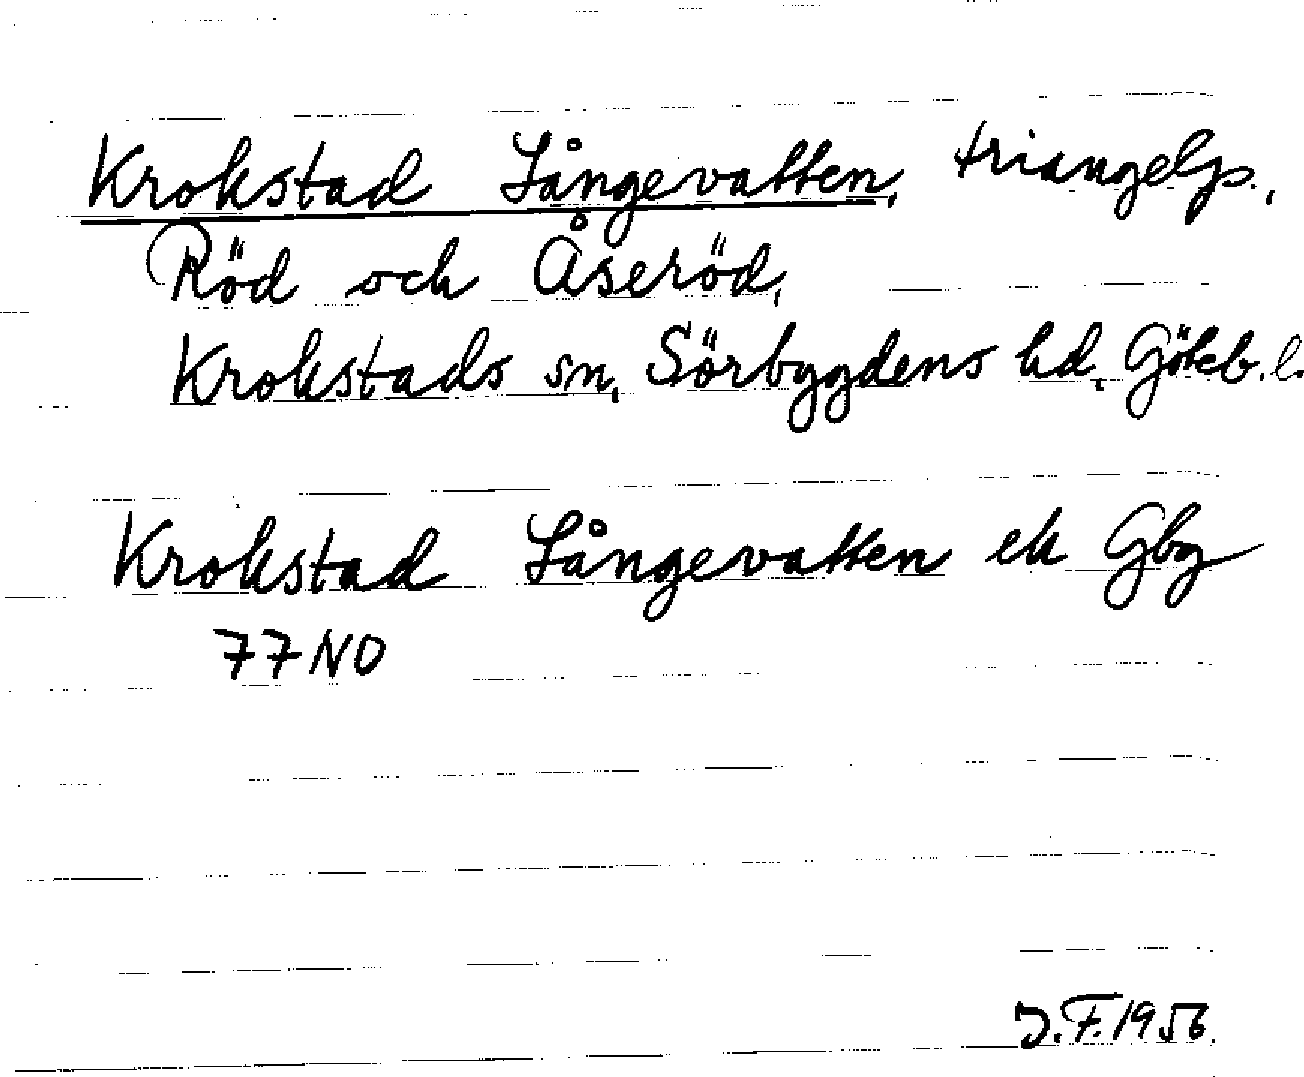 Krokstad Långevatten, triangelp.,
Röd och Åseröd,
Krokstads sn, Sörbygdens hd, Göteb. l.
Krokstad Långevatten ek Gbg
77 NO
J.F. 1956.